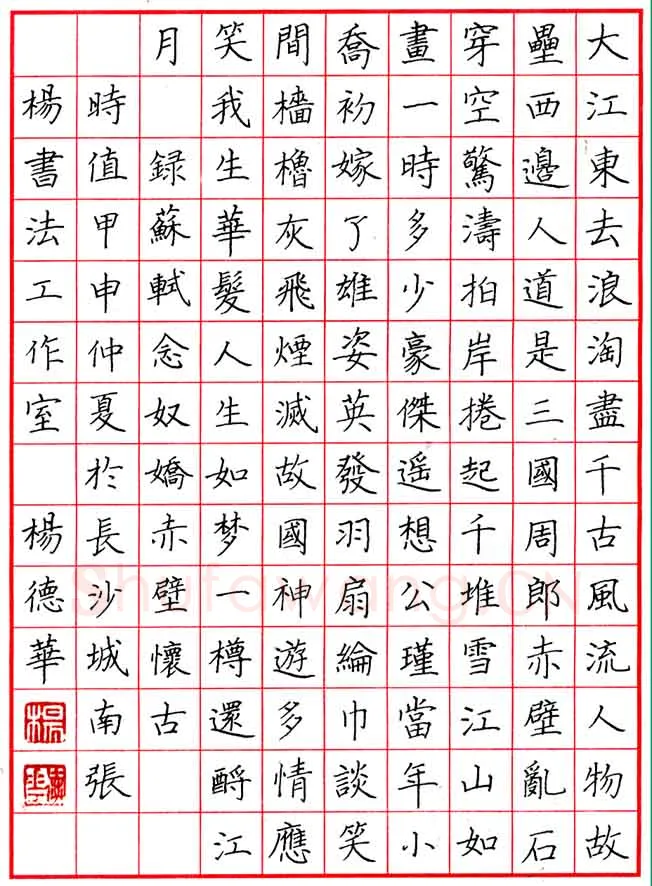 大江東去浪淘盡千古風流人物故
壘西邊人道是三國周郎赤壁亂石
穿空驚濤拍岸捲起千堆雪江山如
畫一時多少豪傑遥想公瑾當年小
喬初嫁了雄姿英發羽扇綸巾談笑
間檣櫓灰飛煙滅故國神遊多情應
笑我生華髮人生如梦一樽還酹江
月 録蘇軾念奴嬌赤壁懷古
時值甲申仲夏於長沙城南張
楊書法工作室 楊德華
Shufawang.CN